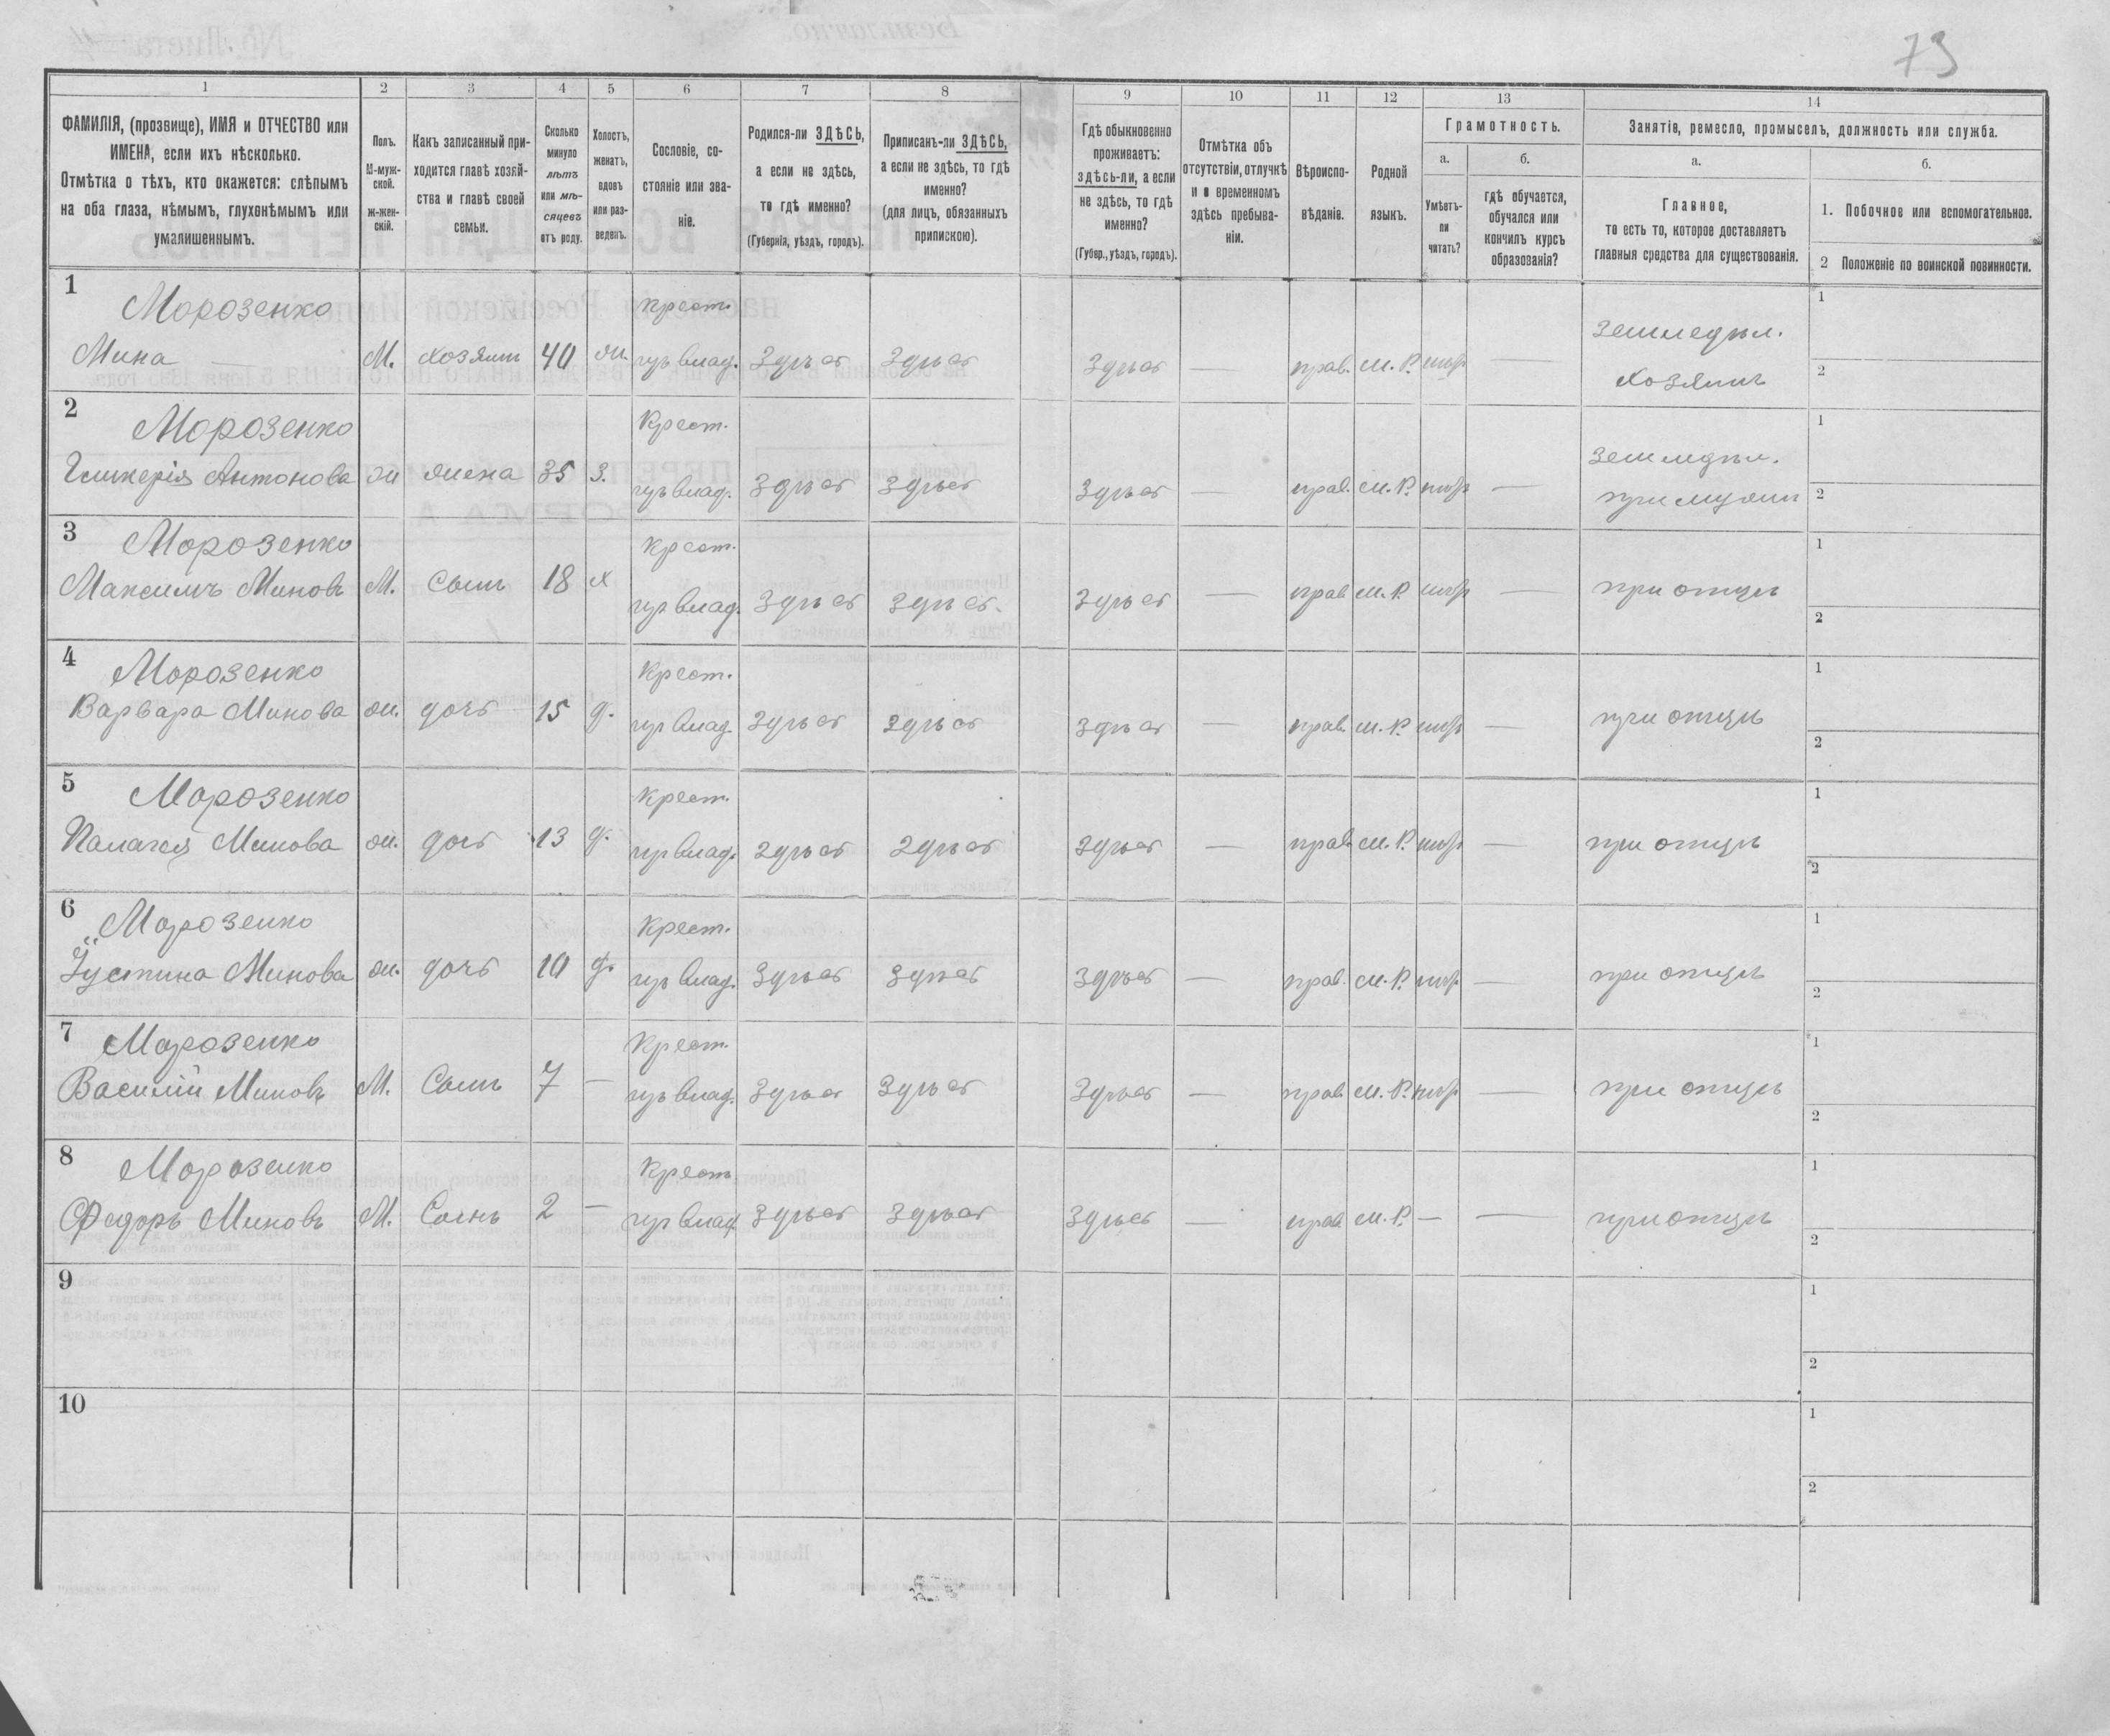 73
1 2 3 4 5 6 7 8 9 10 11 12 13 14
ФАМИЛІЯ, (прозвище), ИМЯ и ОТЧЕСТВО или
ИМЕНА, если ихъ нѣсколько.
Отмѣтка о тѣхъ, кто окажется: слѣпымъ
на оба глаза, нѣмымъ, глухонѣмымъ или
умалишеннымъ.
Полъ.
М-муж-
ской.
Ж-жен-
скій.
Какъ записанный при-
ходится главѣ хозяй-
ства и главѣ своей
семьи.
Сколько
минуло
лѣтъ
или мѣ-
сяцевъ
отъ роду.
Холостъ,
женатъ,
вдовъ
или раз-
веденъ.
Сословіе, со-
стояніе или зва-
ніе.
Родился-ли ЗДѢСЬ,
а если не здѣсь,
то гдѣ именно?
(Губернія, уѣздъ, городъ).
Приписанъ-ли ЗДѢСЬ,
а если не здѣсь, то гдѣ
именно?
(для лицъ, обязанныхъ
припискою).
Гдѣ обыкновенно
проживаетъ:
здѣсь-ли, а если
не здѣсь, то гдѣ
именно?
(Губер., уѣздъ, городъ).
Отмѣтка объ
отсутствіи, отлучкѣ
и о временномъ
здѣсь пребыва-
ніи.
Вѣроиспо-
вѣданіе.
Родной
языкъ.
Грамотность.
а.
Умѣетъ-
ли
читать?
б.
гдѣ обучается,
обучался или
кончилъ курсъ
образованія?
Занятіе, ремесло, промыселъ, должность или служба.
а.
Главное,
то есть то, которое доставляетъ
главныя средства для существованія.
б.
1. Побочное или вспомогательное.
2 Положеніе по воинской повинности.
1 Морозенко Крест. земледѣл. 1
Мина — М. хозяинъ 40 ж. гр. влад. Здѣсь Здѣсь Здѣсь — прав. М. Р. — хозяинъ 2
2 Морозенко Крест. земледѣл. 1
Гликерія Антонова ж жена 35 з. влад. Здѣсь Здѣсь Здѣсь — прав. М. Р. — при мужѣ 2
3 Морозенко Крест. 1
Максимъ Миновъ М. Сынъ 18 х влад. Здѣсь Здѣсь. Здѣсь — прав. М. Р. — при отцѣ 2
4 Морозенко Крест. 1
Варвара Минова ж. дочь 15 д. влад. Здѣсь Здѣсь Здѣсь — прав. М. Р. — при отцѣ 2
5 Морозенко Крест. 1
Палагея Минова ж. дочь 13 д. влад. Здѣсь Здѣсь Здѣсь — прав. М. Р. — при отцѣ 2
6 Морозенко Крест. 1
Іустина Минова ж. дочь 10 д. влад. Здѣсь Здѣсь Здѣсь — прав. М. Р. — при отцѣ 2
7 Морозенко Крест. 1
Василій Миновъ М. Сынъ 7 — влад. Здѣсь Здѣсь Здѣсь — прав. М. Р. — при отцѣ 2
8 Морозенко Крест. 1
Федоръ Миновъ М. Сынъ 2 — влад. Здѣсь Здѣсь Здѣсь — прав М. Р. — — при отцѣ 2
9 1
2
10 1
2